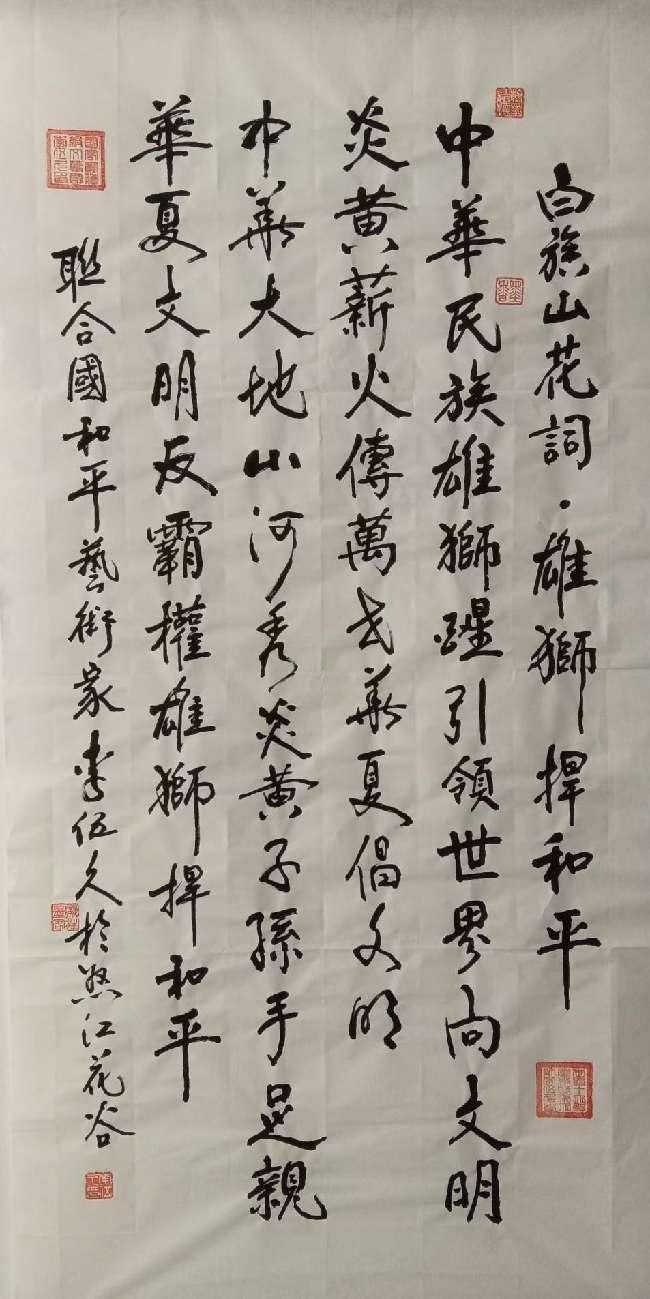 白族山花詞·雄獅捍和平
中華民族雄獅醒引領世界向文明
炎黄薪火傳萬代華夏倡文明
中華大地山河秀炎黄子孫手足親
華夏文明反霸權雄獅捍和平
聯合國和平藝術家李伍久於怒江花谷